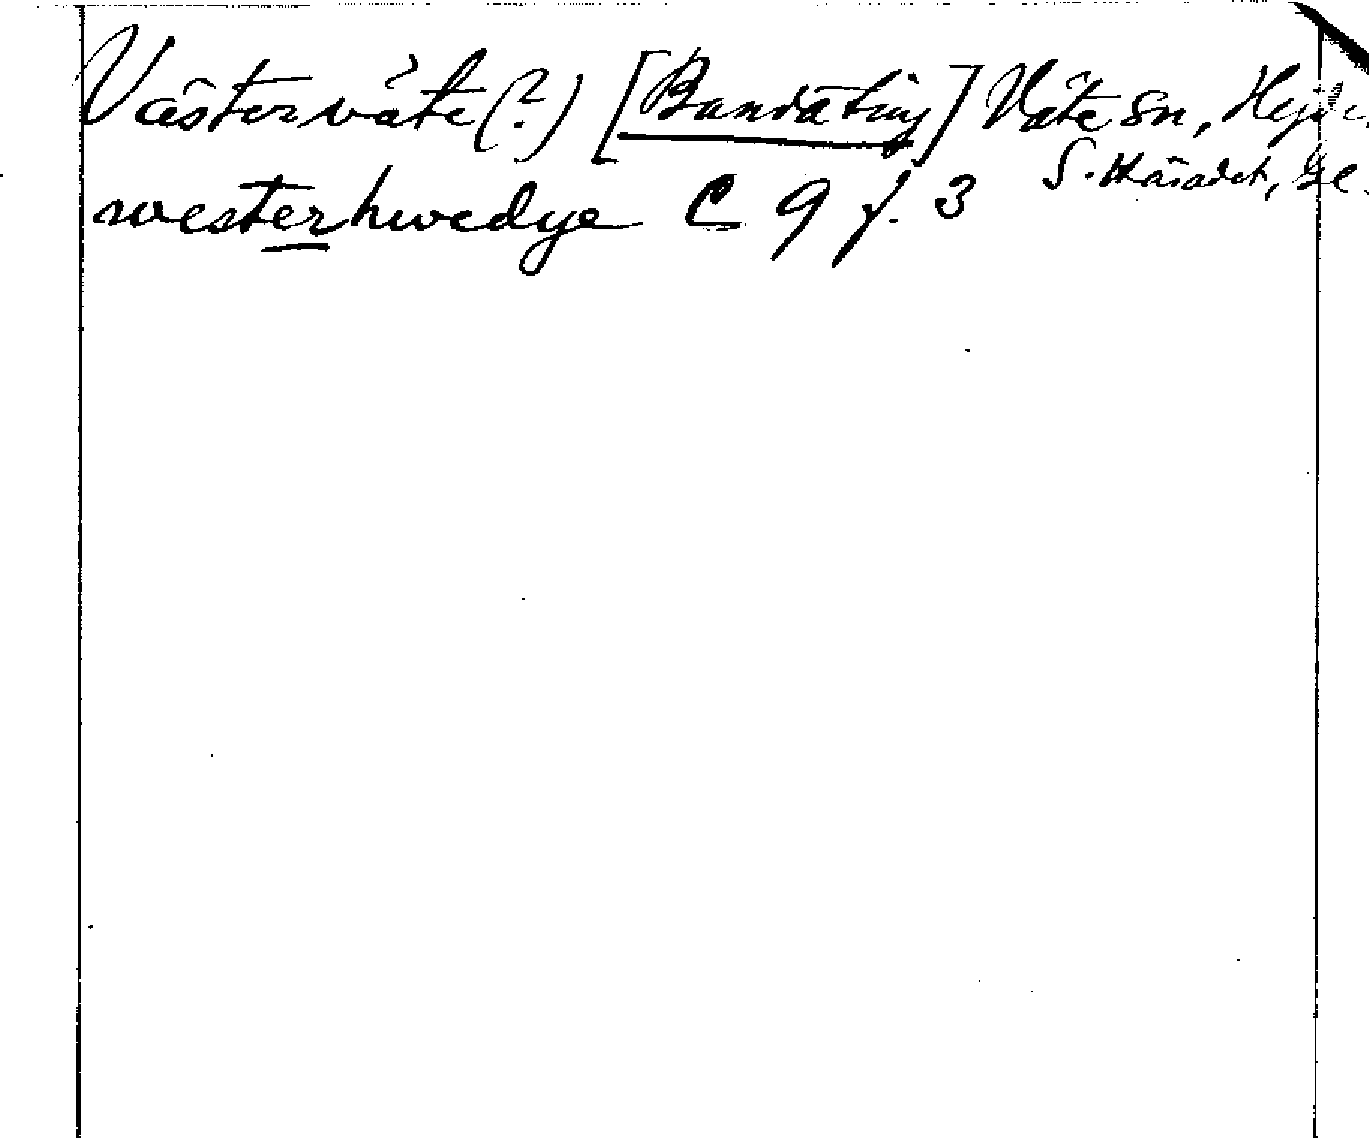 Västerväte (?) [Banda ting] Väte sn, Hejde
S. häradet, Gl.
westerhwedye C 9 f. 3